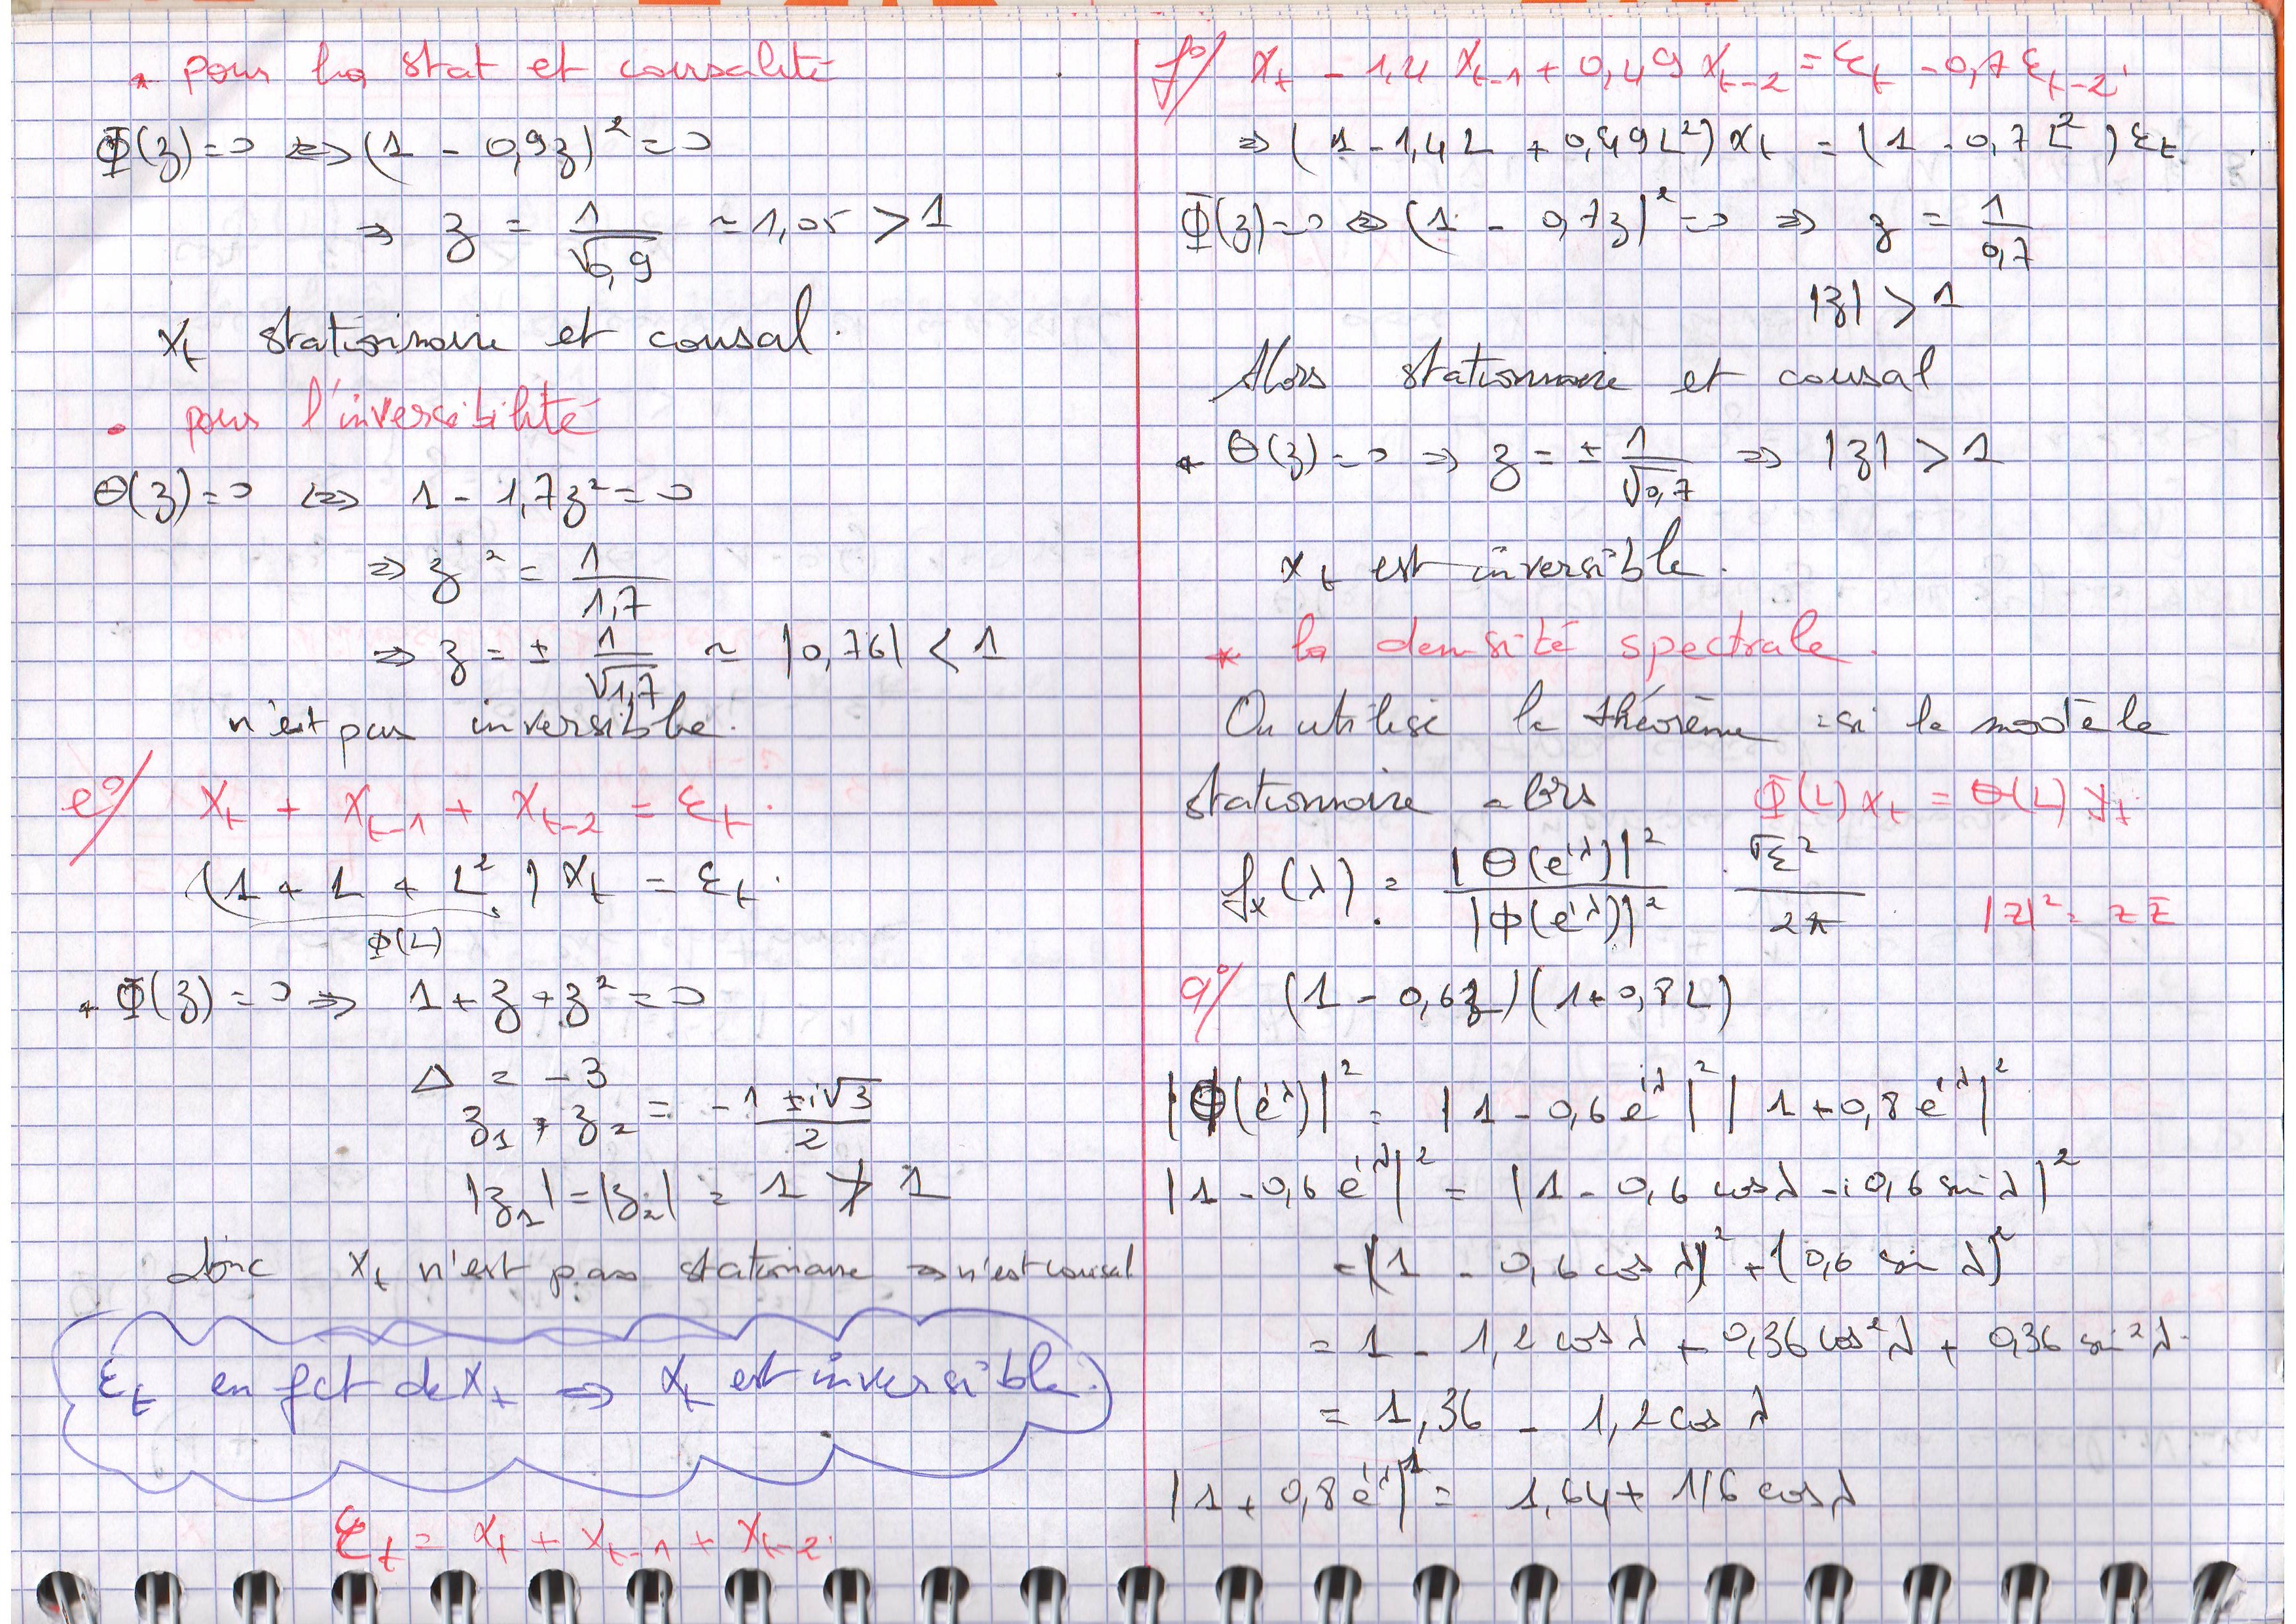 * pour la stat et causalité
Φ(z)=0 ⇔ (1 - 0,9z)² = 0
⇒ z = 1/√0,9 ≃ 1,05 > 1
Xt stationnaire et causal.
• pour l'inversibilité
Θ(z)=0 ⇔ 1 - 1,7z² = 0
⇒ z² = 1/1,7
⇒ z = ± 1/√1,7 ≃ |0,76| < 1
n'est pas inversible.
e°/ Xt + Xt-1 + Xt-2 = εt.
(1 + L + L²) Xt = εt.
Φ(L)
* Φ(z) = 0 ⇒ 1 + z + z² = 0
Δ = -3
z1, z2 = -1 ± i√3 / 2
|z1| = |z2| = 1 ≯ 1
donc Xt n'est pas stationnaire → n'est causal
εt en fct de Xt ⇒ Xt est inversible.
εt = Xt + Xt-1 + Xt-2.
f°/ Xt - 1,4 Xt-1 + 0,49 Xt-2 = εt - 0,7 εt-2.
⇒ (1 - 1,4L + 0,49L²) Xt = (1 - 0,7L²) εt
Φ(z)=0 ⇔ (1 - 0,7z)² = 0 ⇒ z = 1/0,7
|z| > 1
Alors stationnaire et causal
* Θ(z) = 0 ⇒ z = ± 1/√0,7 ⇒ |z| > 1
Xt est inversible.
* la densité spectrale.
On utilise le théorème : si le modèle
stationnaire alors Φ(L) Xt = Θ(L) Yt
fx(λ) = |Θ(e^iλ)|² / |Φ(e^iλ)|² . σε² / 2π |z|² = z z̄
a°/ (1 - 0,6z)(1 + 0,8L)
|Φ(e^iλ)|² = |1 - 0,6 e^iλ|² |1 + 0,8 e^iλ|²
|1 - 0,6 e^iλ|² = |1 - 0,6 cos λ - i 0,6 sin λ|²
= (1 - 0,6 cos λ)² + (0,6 sin λ)²
= 1 - 1,2 cos λ + 0,36 cos² λ + 0,36 sin² λ
= 1,36 - 1,2 cos λ
|1 + 0,8 e^iλ|² = 1,64 + 1,6 cos λ